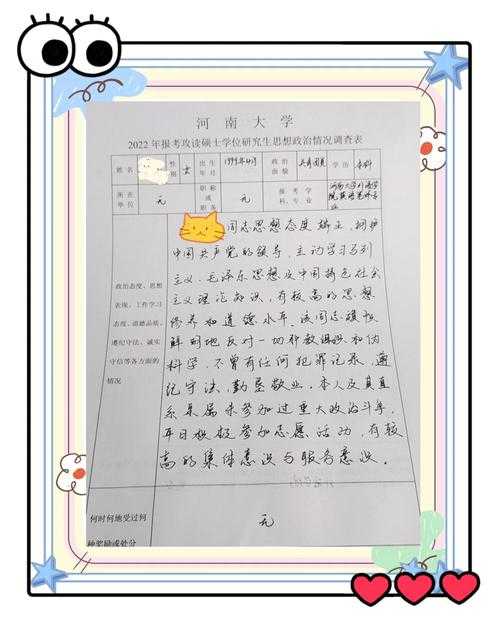 河南大学
2022年报考攻读硕士学位研究生思想政治情况调查表
姓名 性别 女 出生年月 1999年4月 政治面貌 共青团员 学历 本科
所在单位 无 职称或职务 无 报考学科、专业 河南大学外语学院英语笔译专业
政治态度、思想表现、工作学习态度、道德品质、遵纪守法、诚实守信等各方面的情况
同志思想态度端正,拥护
中国共产党的领导,主动学习马列
主义、毛泽东思想及中国特色社会
主义理论知识,有较高的思想
修养和道德水平。该同志旗帜
鲜明地反对一切邪教组织和伪
科学,不曾有任何犯罪记录,遵
纪守法,勤恳敬业。本人及其直
系亲属未参加过重大政治斗争,
平日积极参加志愿活动,有较
高的集体意识与服务意识。
何时何地受过何种奖励或处分
无